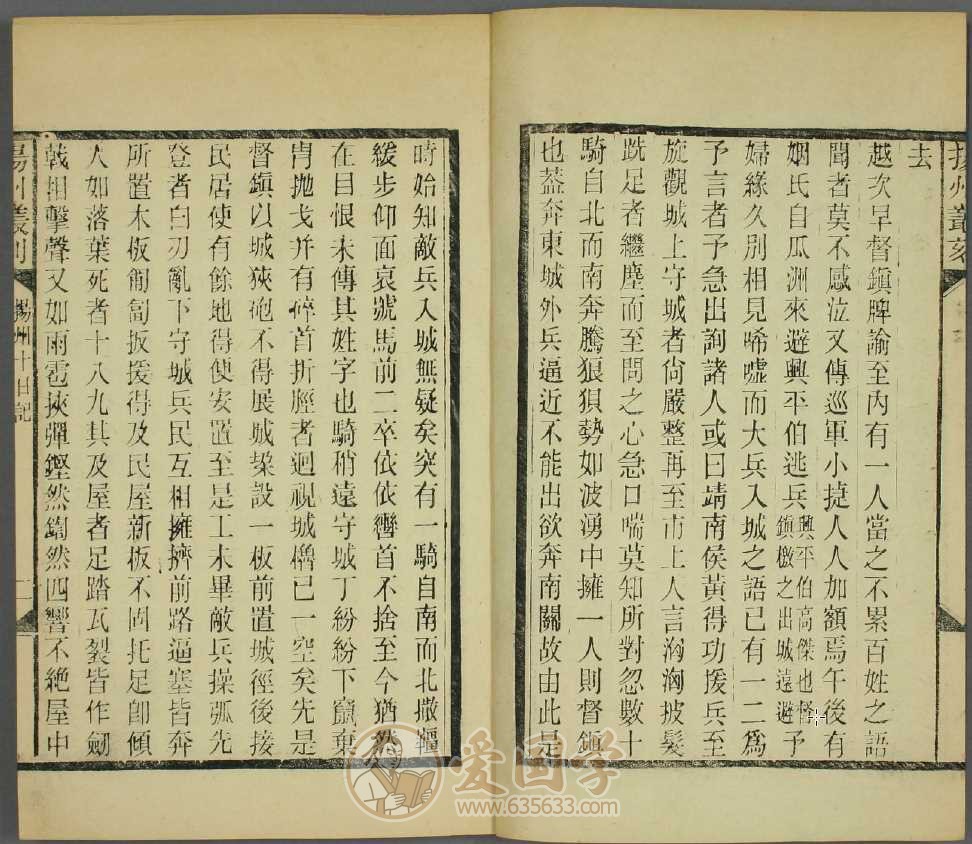 揚州叢刻
去
越次早督鎮牌諭至内有一人當之不累百姓之語
聞者莫不感泣又傳巡軍小捷人人加額焉午後有
姻氏自瓜洲來避興平伯逃兵興平伯高傑也督鎮檄之出城遠避予
婦緣久別相見唏噓而大兵入城之語已有一二爲
予言者予急出詢諸人或曰靖南侯黃得功援兵至
旋觀城上守城者尙嚴整再至市上人言洶洶披髮
跣足者繼塵而至問之心急口喘莫知所對忽數十
騎自北而南奔騰狼狽勢如波湧中擁一人則督鎮
也蓋奔東城外兵逼近不能出欲奔南關故由此是
時始知敵兵入城無疑矣突有一騎自南而北撒韁
緩步仰面哀號馬前二卒依依轡首不捨至今猶然
在目恨未傳其姓字也騎稍遠守城丁紛紛下竄棄
胄抛戈并有碎首折脛者迴視城櫓已一空矣先是
督鎮以城狹砲不得展城垜設一板前置城徑後接
民居使有餘地得便安置至是工未畢敵兵操弧先
登者白刃亂下守城兵民互相擁擠前路逼塞皆奔
所置木板匍匐扳援得及民屋新板不固托足卽傾
人如落葉死者十八九其及屋者足踏瓦裂皆作劒
戟相擊聲又如雨雹挾彈鏗然鍧然四響不絶屋中
揚州叢刻
揚州十日記
二
爱国学
www.635633.com